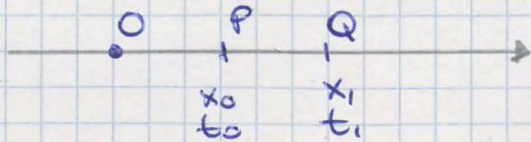 O P Q
x₀ x₁
t₀ t₁